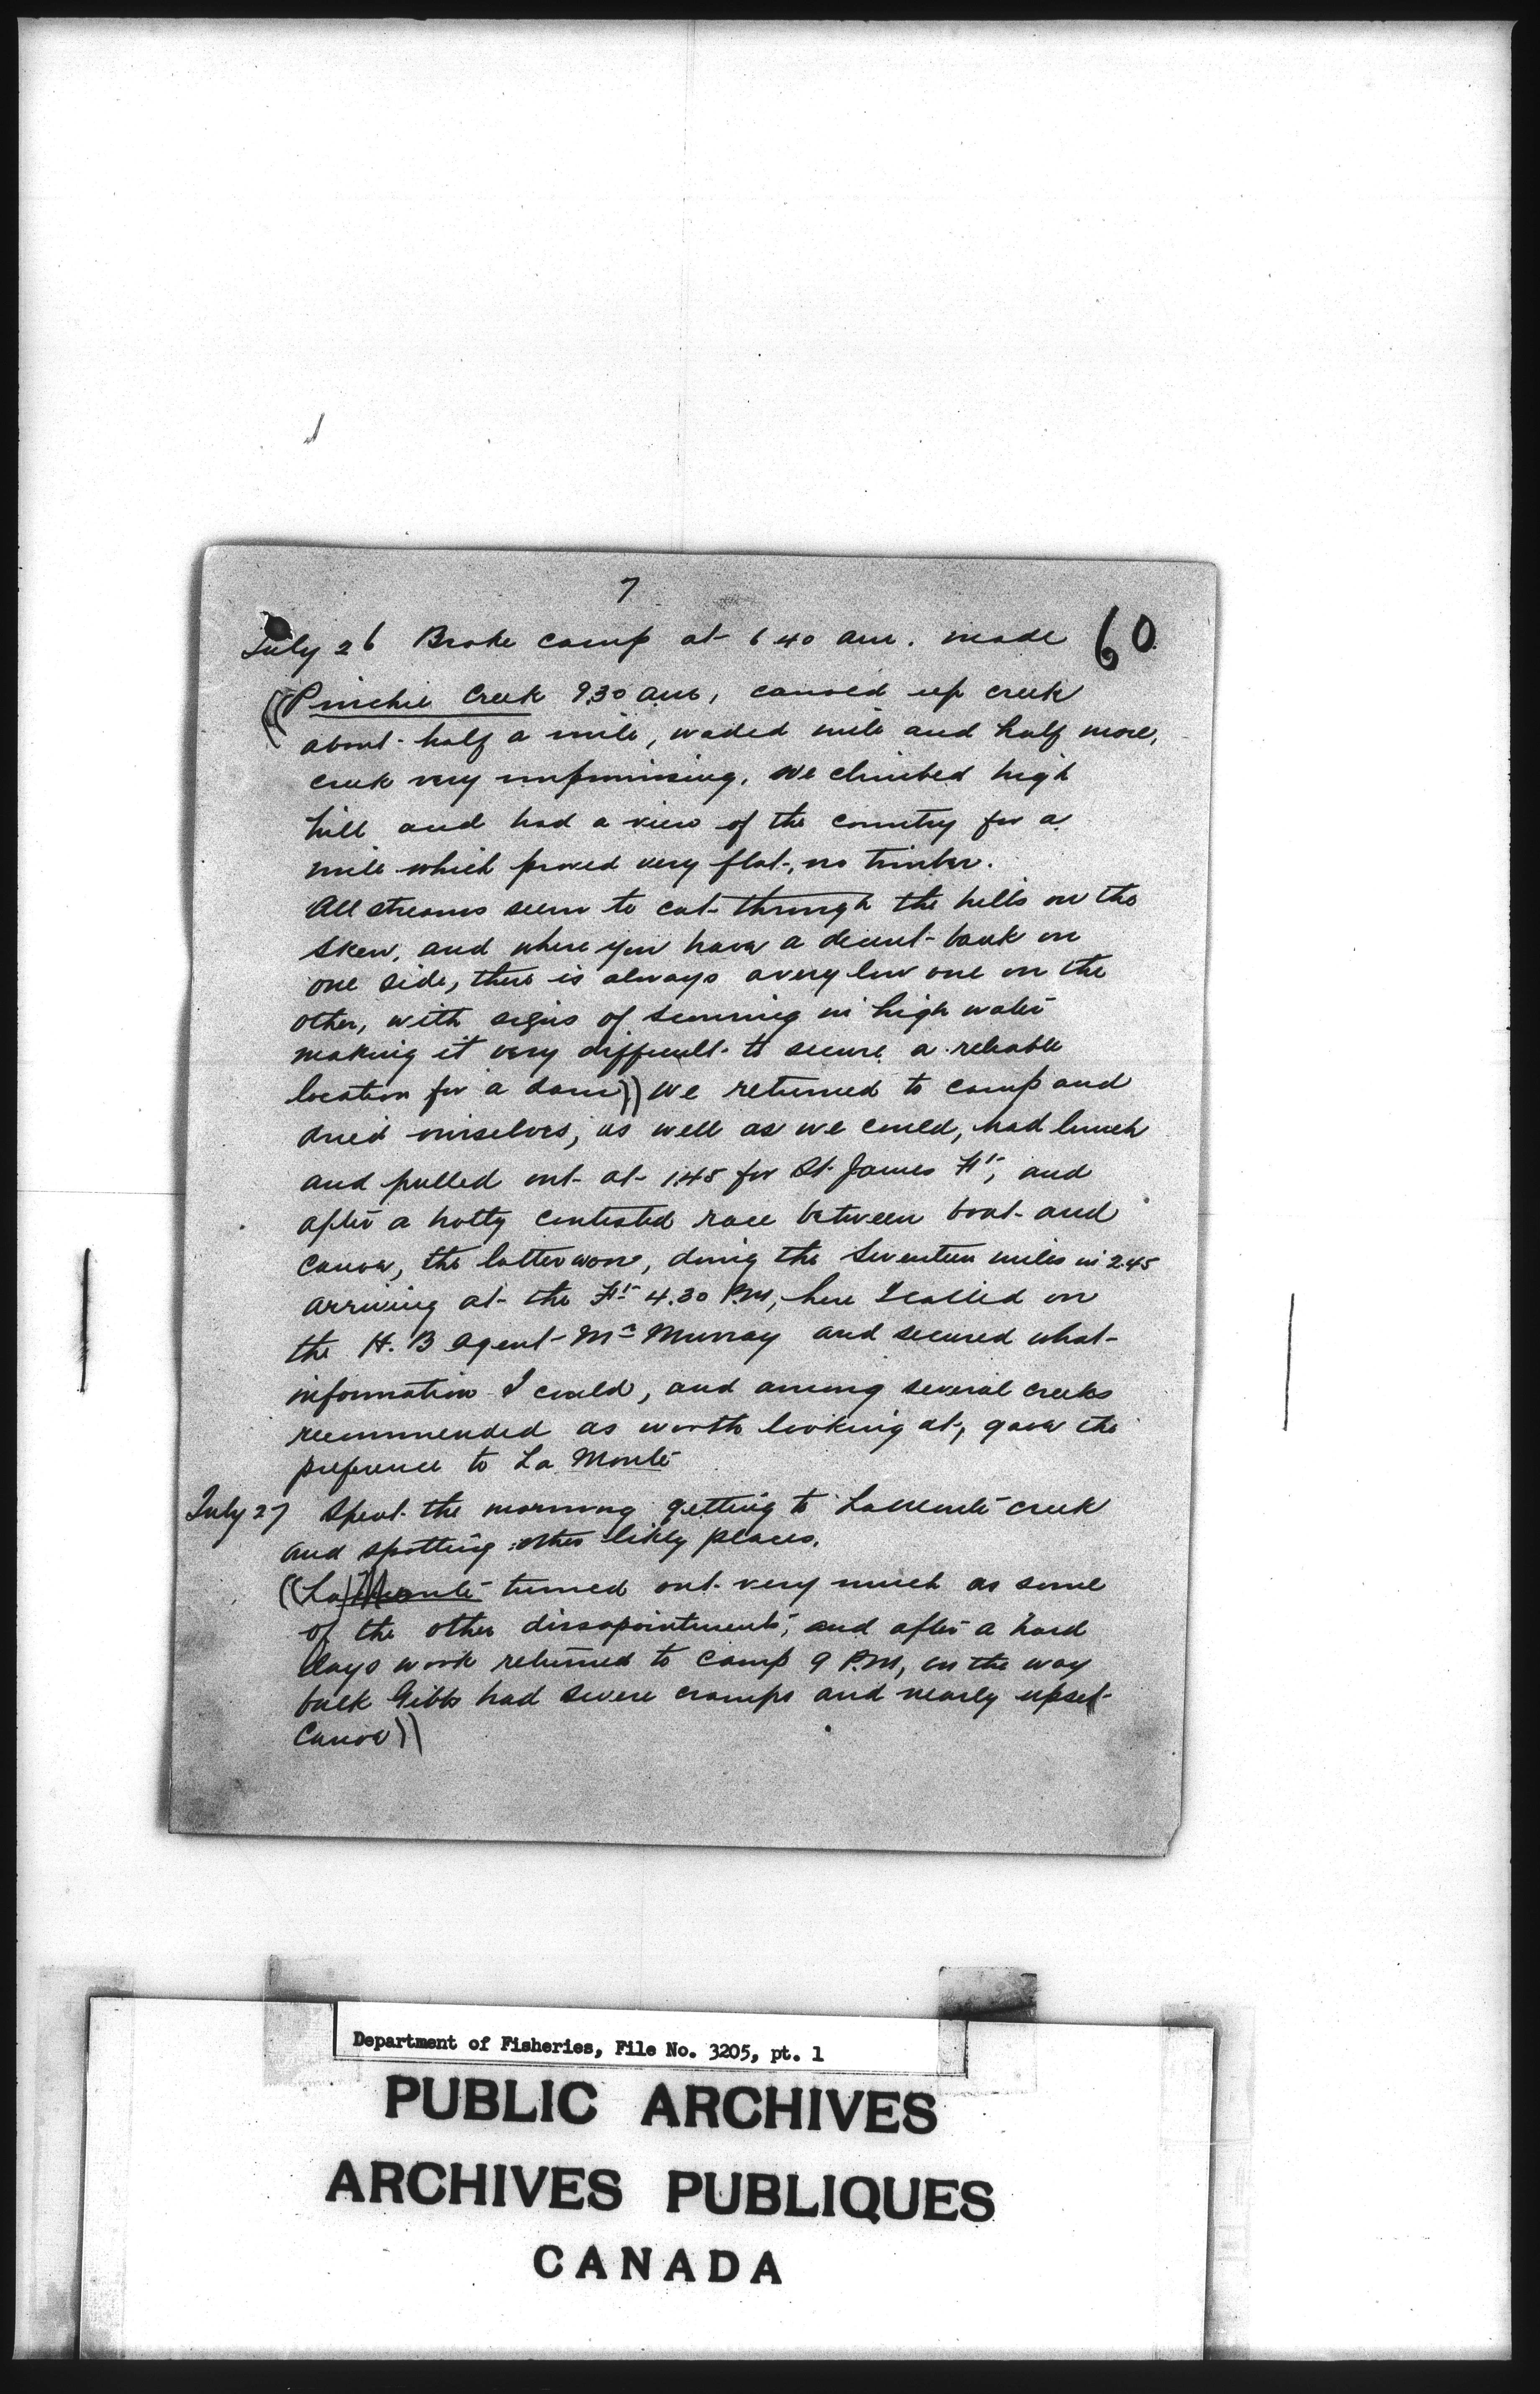 7
60
July 26 Broke camp at 6 40 am. made
((Pinchie Creek 9.30 am, canoed up creek
about half a mile, waded mile and half more,
creek very unpromising. We climbed high
hill and had a view of the country for a
mile which proved very flat, no timber.
All streams seem to cut through the hills on the
skew, and where you have a decent bank on
one side, there is always a very low one on the
other, with signs of running in high water
making it very difficult to secure a reliable
location for a dam)) We returned to camp and
dried ourselves, as well as we could, had lunch
and pulled out at 1.45 for St. James Ft, and
after a hotly contested race between boat and
canoe, the latter won, doing the seventeen miles in 2.45
arriving at the Ft 4.30 P.M, here I called on
the H. B agent Mr Murray and secured what
information I could, and among several creeks
recommended as worth looking at, gave the
preference to La Monte
July 27 Spent the morning getting to LaMonte creek
and spotting other likly places.
((La Monte turned out very much as some
of the other dissapointments, and after a hard
days work returned to camp 9 P.M, on the way
back Gibbs had severe cramps and nearly upset
Canoe))
Department of Fisheries, File No. 3205, pt. 1
PUBLIC ARCHIVES
ARCHIVES PUBLIQUES
CANADA